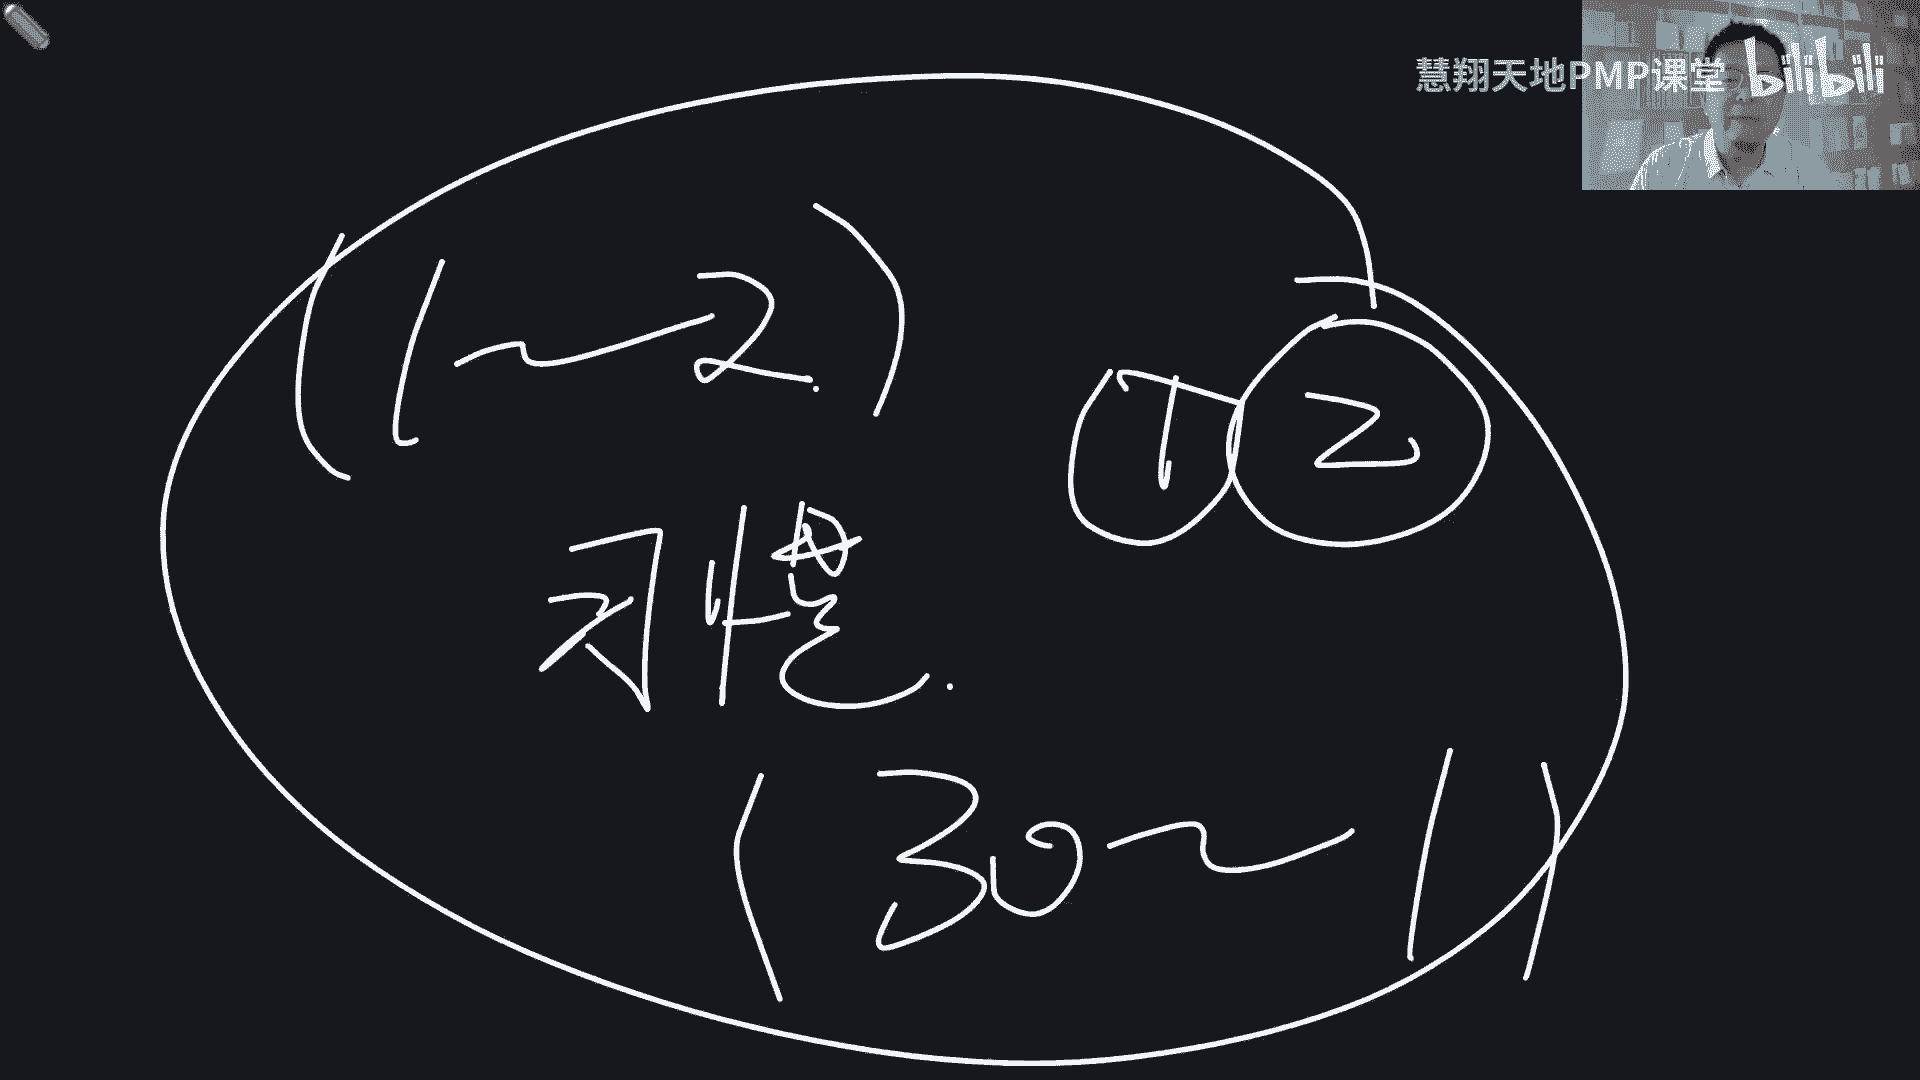 慧翔天地PMP课堂 bilibili
(1~2)
1 2
习惯.
(30~1)